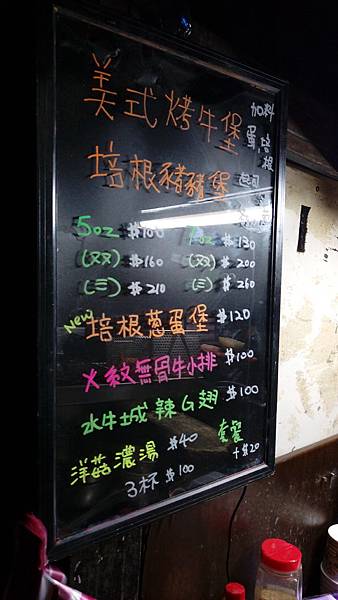 美式烤牛堡
培根豬豬堡
加料
蛋.培根
起司
5oz $100 7oz $130
(双) $160 (双) $200
(三) $210 (三) $260
New 培根蔥蛋堡 $120
X紋無骨牛小排 $100
水牛城辣G翅 $100
洋菇濃湯 $40
3杯 $100
套餐
+$20